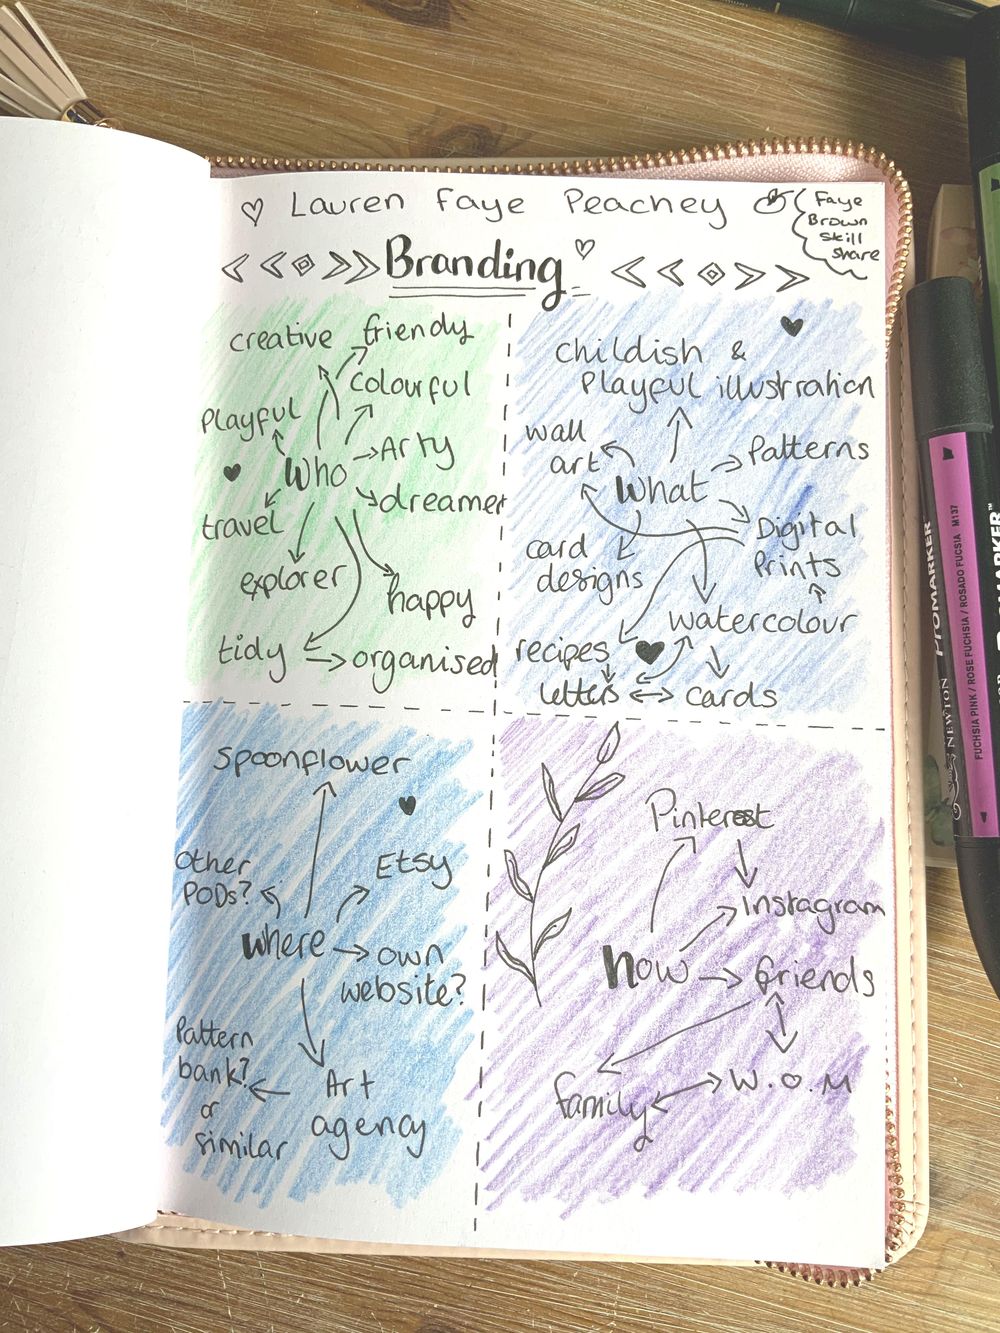 Lauren Faye Peachey
Faye
Brown
Skill
Share
Branding
creative
friendy
colourful
Playful
Arty
Who
dreamer
travel
explorer
happy
tidy
organised
childish &
Playful illustration
wall
art
Patterns
What
Digital
Prints
card
designs
watercolour
recipes
letters
cards
Spoonflower
Other
PODs?
Etsy
where
own
website?
Pattern
bank?
or
similar
Art
agency
Pinterest
Instagram
how
friends
family
W.O.M
PROMARKER™
NEWTON
FUCHSIA PINK / ROSE FUCHSIA / ROSADO FUCSIA M137